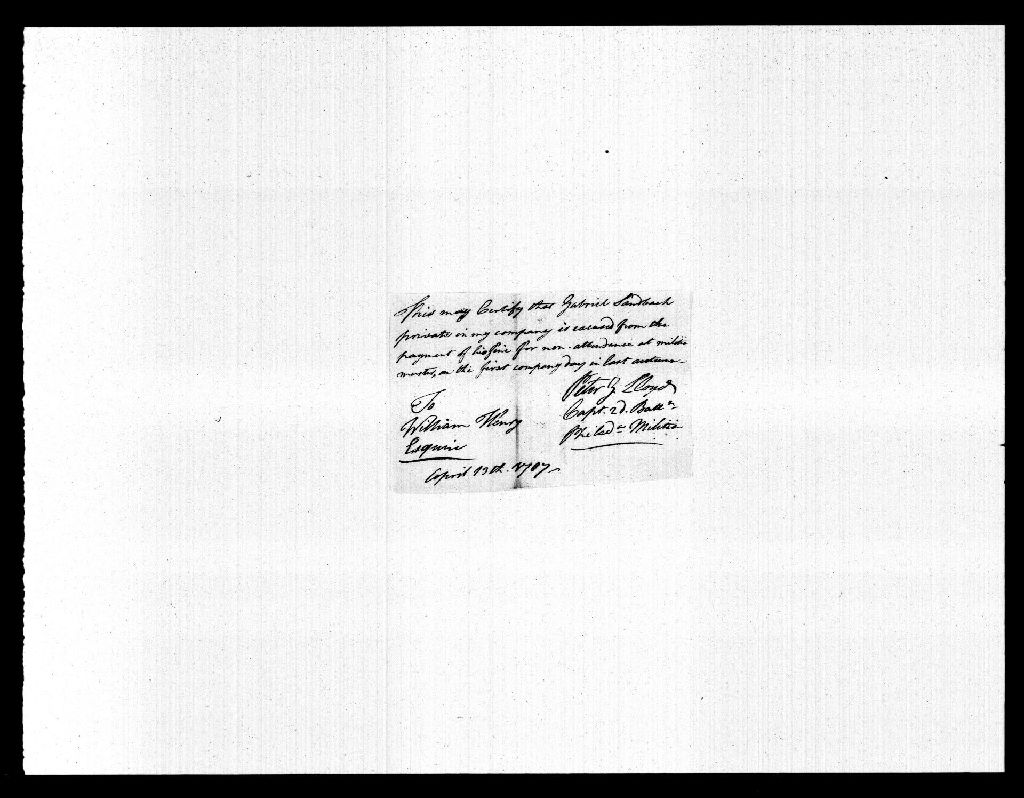 This may Certify that Gabriel Sandbach
private in my company is excused from the
payment of his fine for non-attendance at militia
muster, on the first company day in last autumn
Peter Z Lloyd
Capt. 2d. Batt.n
Philad.a Militia
To
William Henry
Esquire
April 13th. 1787